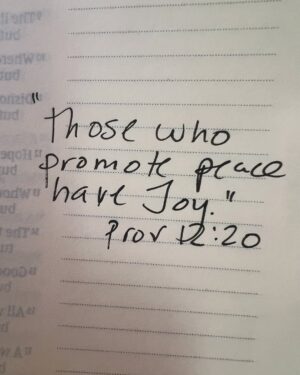 "Those who
promote peace
have Joy."
Prov 12:20